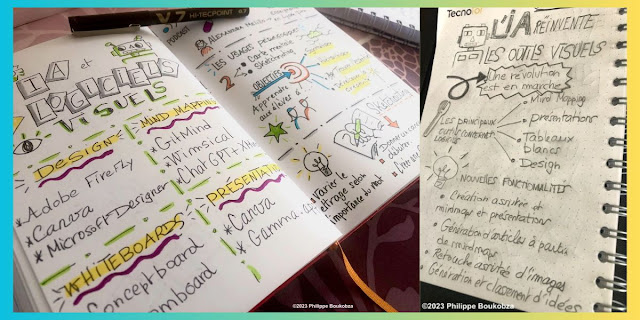 V7 HI-TECPOINT
IA et
LOGICIELS
VISUELS
DESIGN
*Adobe Firefly
*Canva
*Microsoft Designer
WHITEBOARDS
Conceptboard
MIND MAPPING
*GitMind
*Wimsical
*ChatGPT+XM
PRÉSENTATION
*Canva
*Gamma.a
PODCAST
LES USAGES PÉDAGOGIQUES
2
Carte mentale
OBJECTIFS
Apprendre
aux élèves à
Varier le
titrage selon
importance du mot
©2023 Philippe Boukobza
Tecno
L'IA RÉINVENTE
LES OUTILS VISUELS
Une révolution
est en marche
LES PRINCIPAUX
OUTILS CONCERNÉS
LOGICIELS
• Mind Mapping
• présentations
• Tableaux
blancs
• Design
NOUVELLES FONCTIONNALITÉS
• Création assistée de
mindmap et présentations
• Génération d'articles à partir
de mindmap
• Retouche assistée d'images
• Génération et classement d'idées
©2023 Philippe Boukobza